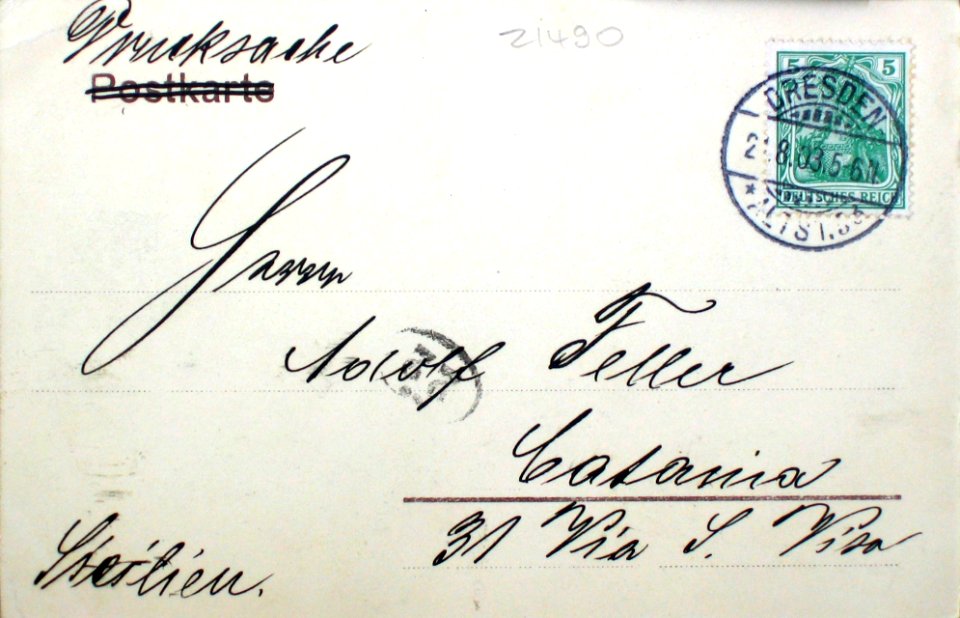 Drucksache
21490
Postkarte
5 5
DRESDEN
8.03.5-6
*ALTST.
DEUTSCHES REICH
Herrn
Adolf Feller
Catania
31 Via S. Vito
Sicilien.